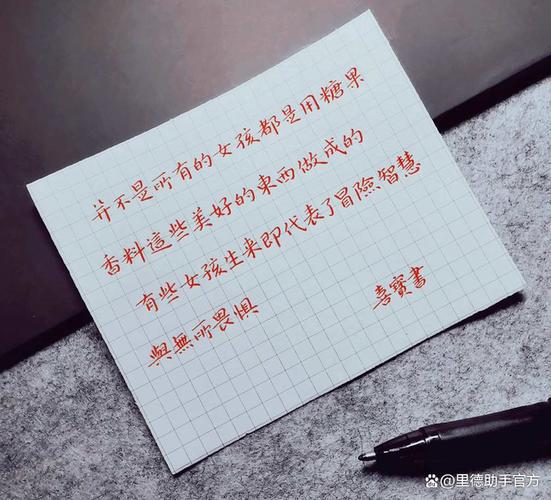 并不是所有的女孩都是用糖果
香料這些美好的東西做成的
有些女孩生来即代表了冒險智慧
與無所畏惧
喜寶書
里德助手官方